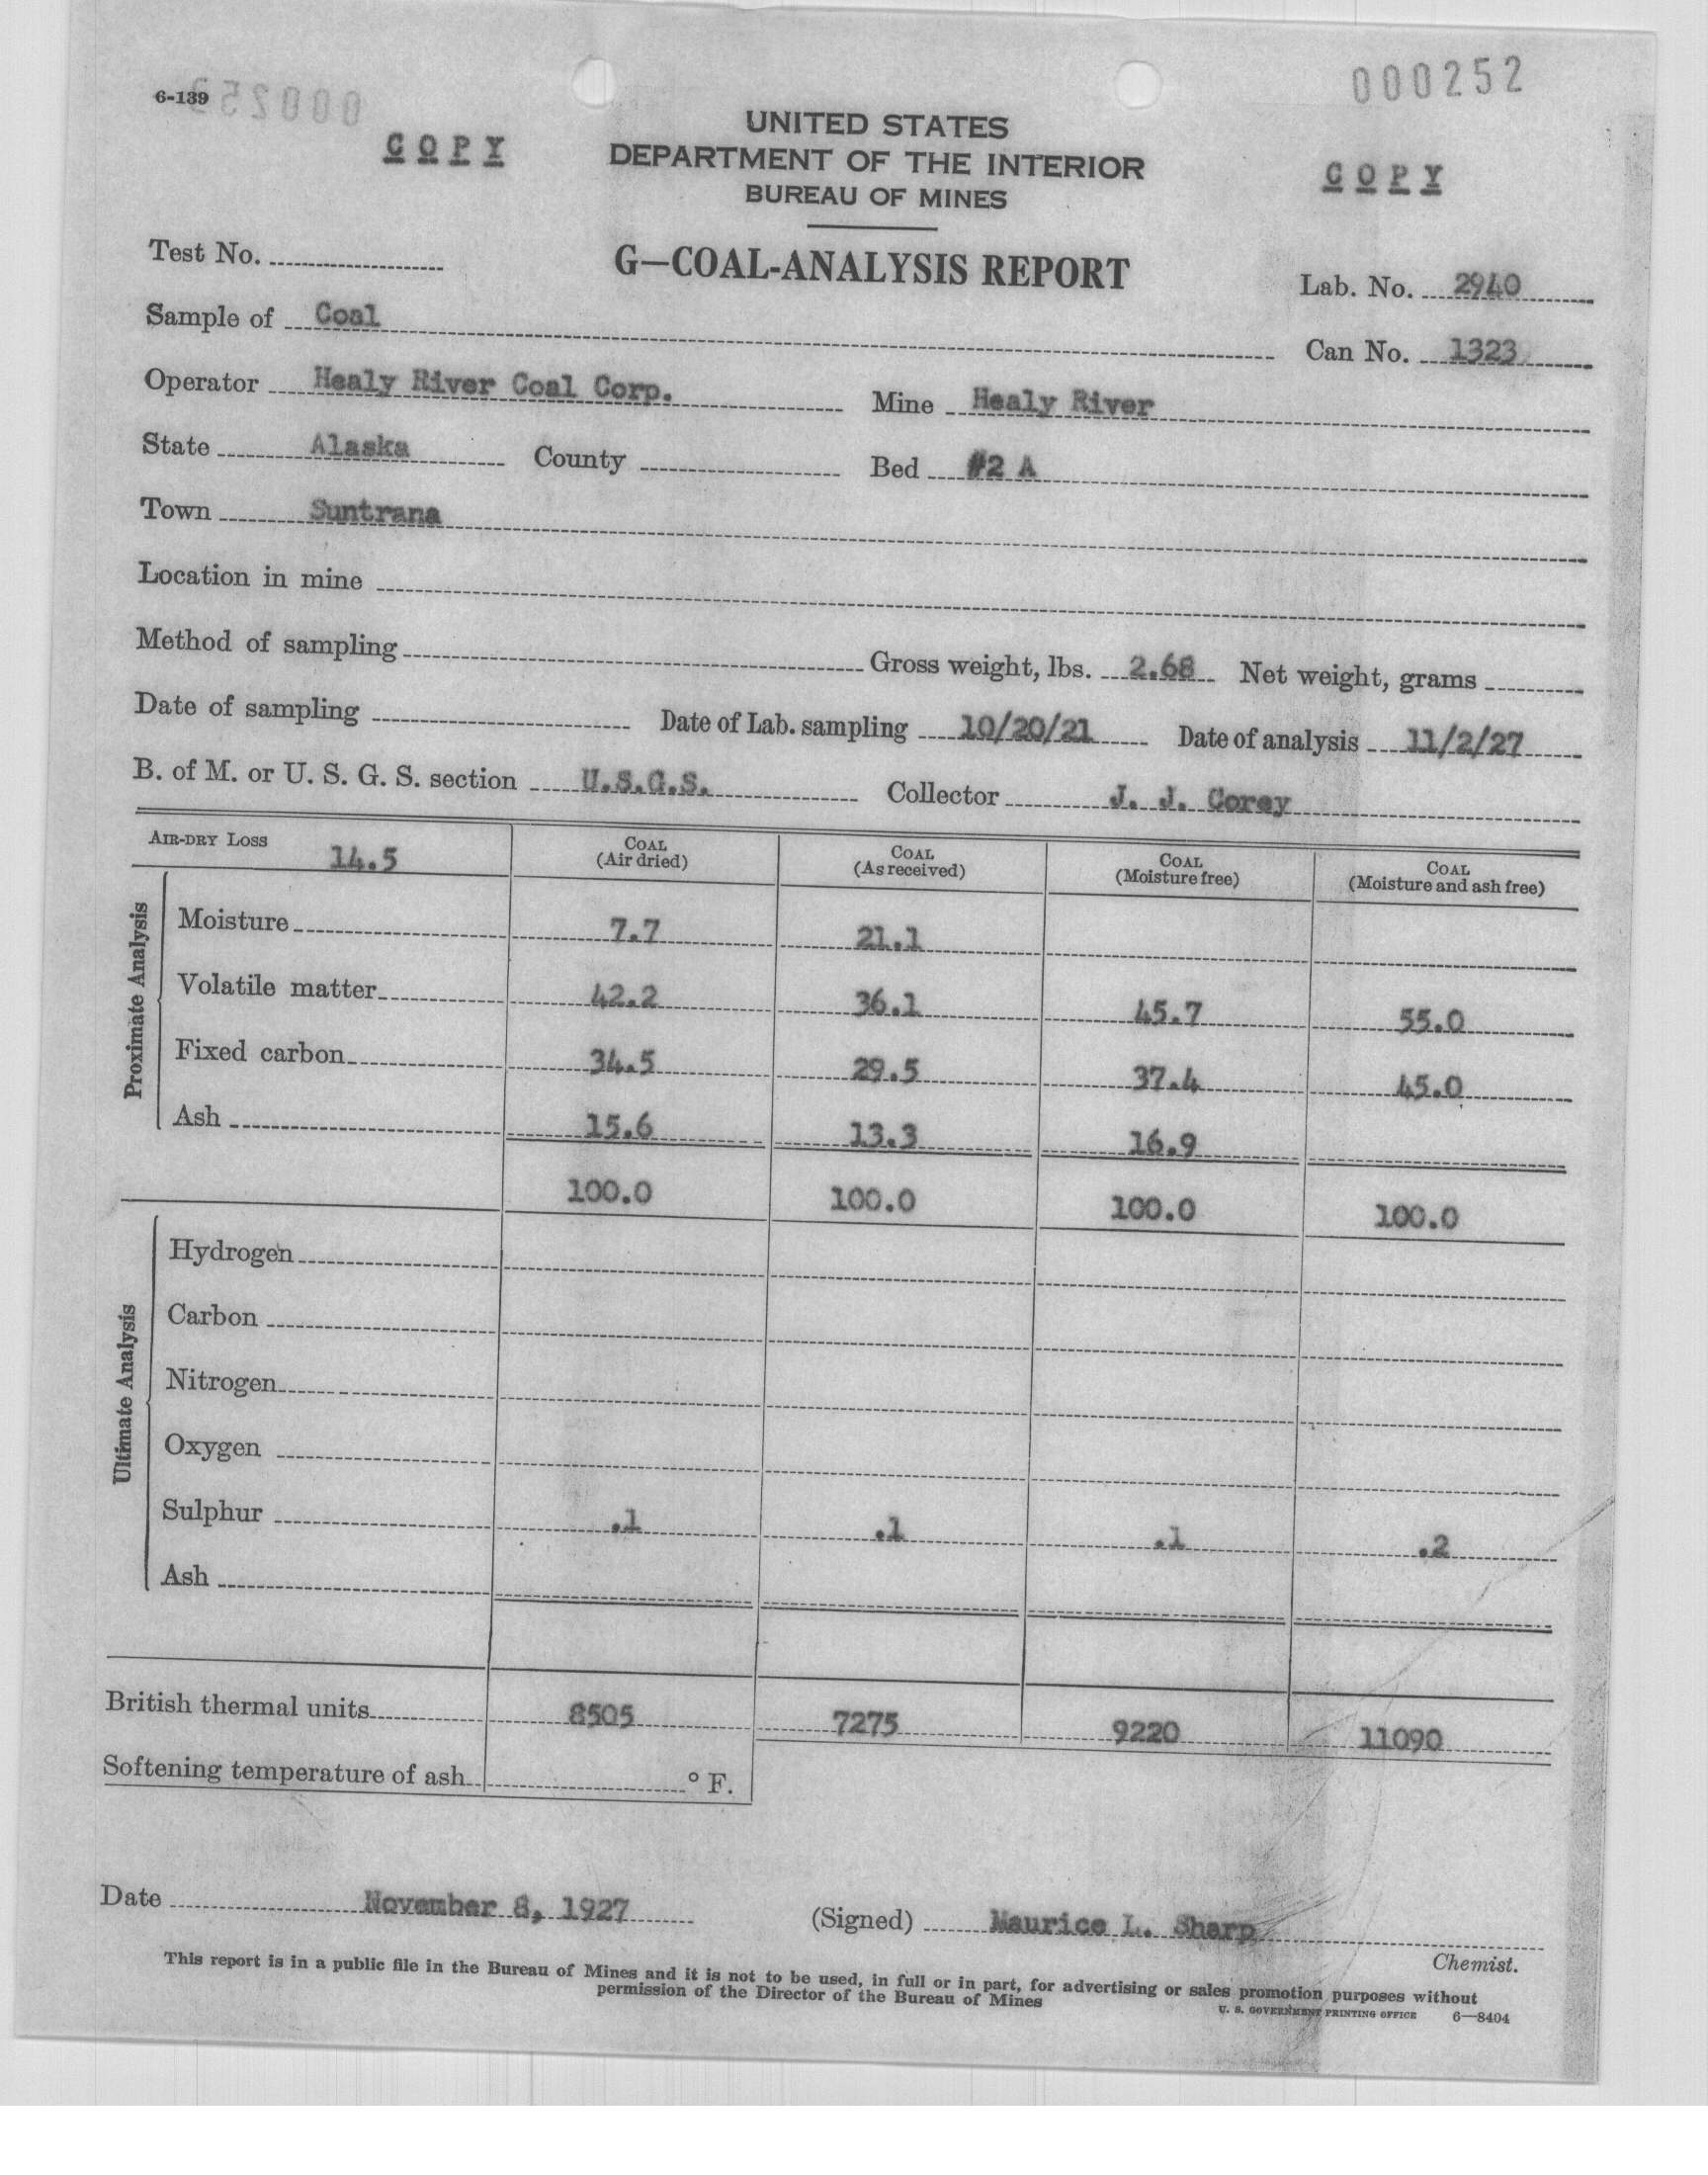 6-139
000252
000252
COPY
UNITED STATES
DEPARTMENT OF THE INTERIOR
BUREAU OF MINES
COPY
Test No.
G—COAL-ANALYSIS REPORT
Lab. No. 2940
Sample of Coal
Can No. 1323
Operator Healy River Coal Corp. Mine Healy River
State Alaska County Bed #2 A
Town Suntrana
Location in mine
Method of sampling Gross weight, lbs. 2.68 Net weight, grams
Date of sampling Date of Lab. sampling 10/20/21 Date of analysis 11/2/27
B. of M. or U. S. G. S. section U.S.G.S. Collector J. J. Corey
AIR-DRY LOSS 14.5 COAL (Air dried) COAL (As received) COAL (Moisture free) COAL (Moisture and ash free)
Proximate Analysis
Moisture 7.7 21.1
Volatile matter 42.2 36.1 45.7 55.0
Fixed carbon 34.5 29.5 37.4 45.0
Ash 15.6 13.3 16.9
100.0 100.0 100.0 100.0
Ultimate Analysis
Hydrogen
Carbon
Nitrogen
Oxygen
Sulphur .1 .1 .1 .2
Ash
British thermal units 8505 7275 9220 11090
Softening temperature of ash ° F.
Date November 8, 1927 (Signed) Maurice L. Sharp
Chemist.
This report is in a public file in the Bureau of Mines and it is not to be used, in full or in part, for advertising or sales promotion purposes without
permission of the Director of the Bureau of Mines
U. S. GOVERNMENT PRINTING OFFICE 6—8404